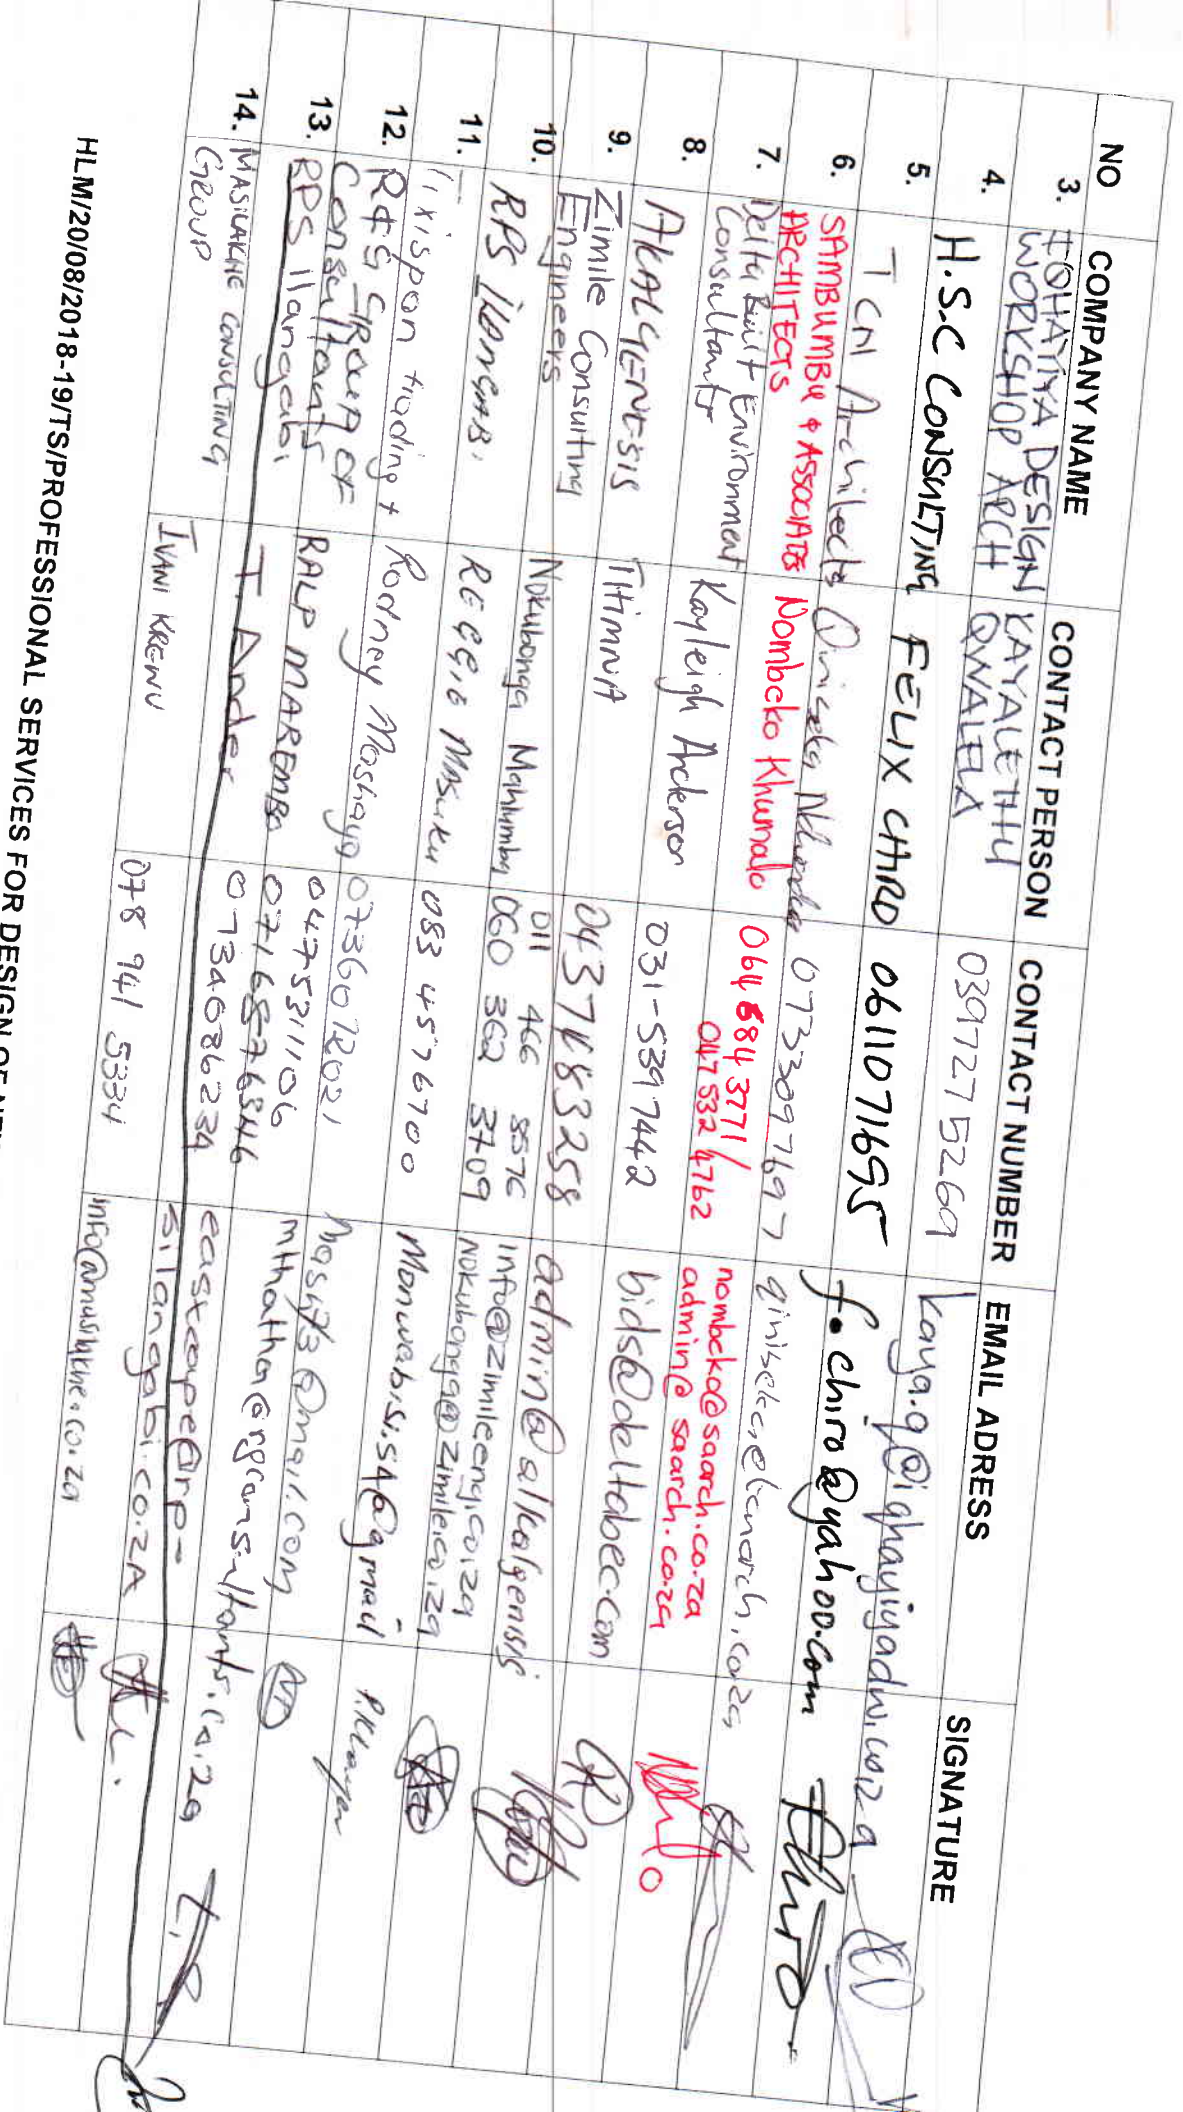 NO COMPANY NAME CONTACT PERSON CONTACT NUMBER EMAIL ADRESS SIGNATURE
3. IQHAYIYA DESIGN WORKSHOP ARCH KAYALETHU QWALELA 0397275269 kaya.q@iqhayiyadw.co.za
4. H.S.C CONSULTING FELIX CHIRO 0611071695 f.chiro@yahoo.com
5. TCN Architects 0733097697
6. SAMBUMBU & ASSOCIATES ARCHITECTS Nombeko Khumalo 064 684 3771/
047 532 4762 nombeko@saarch.co.za
admin@saarch.co.za
7. Delta Built Environment
Consultants Kayleigh Anderson 031-5397442 bids@deltabec.com
8. AKALGENESIS Titimnia 0437483258 admin@alkalgenisis
9. Zimile Consulting
Engineers Nokubonga Mahlumba 011 466 8576
060 362 3709 info@zimileeng.co.za
Nokubonga@zimile.co.za
10. RPS ILANGABI REGGIE MASUKU 083 4576700 Monwabisi.sa@gmail
11. Tixispon trading + Rodney Mashaya 0736072021
12. R&G GROUP OF
Consultants RALP MAREMBO 0475311106
0716876846 mthatha@rgconsultants.co.za
13. RPS Ilangabi T Ander 0734086234 eastcape@rp-
silangabi.co.za
14. MASILAKHE CONSULTING
GROUP IVANI KREWU 078 941 5334 info@masilakhe.co.za
HLM/20/08/2018-19/TS/PROFESSIONAL SERVICES FOR DESIGN OF